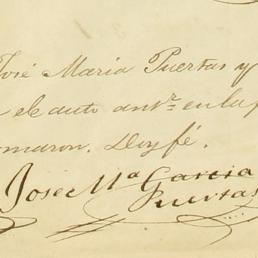 José Maria Puertas y
el auto antr. en la p
maron. Doy fé.
José Mª Garcia
Puertas